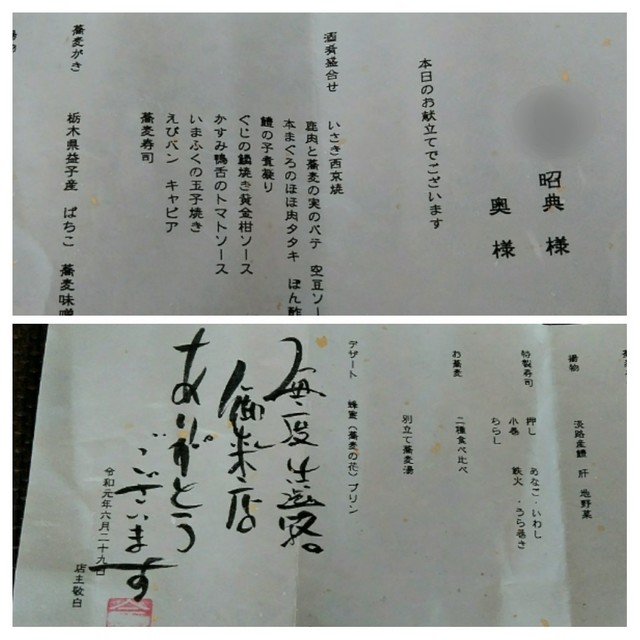 昭典 様
奥 様
本日のお献立てでございます
酒肴盛合せ
いさき西京焼
鹿肉と蕎麦の実のパテ 空豆ソー
本まぐろのほほ肉タタキ ぽん酢
鱧の子煮凝り
ぐじの鱗焼き黄金柑ソース
かすみ鴨舌のトマトソース
いまふくの玉子焼き
えびパン キャビア
蕎麦寿司
蕎麦がき
栃木県益子産 ばちこ 蕎麦味噌
揚物
淡路産鱧 肝 地野菜
特製寿司
押し あなご・いわし
小巻 鉄火・うら巻き
ちらし
お蕎麦
二種食べ比べ
別立て蕎麦湯
デザート 蜂蜜(蕎麦の花)プリン
毎度
御来店
ありがとう
ございます
令和元年六月二十九日
店主敬白